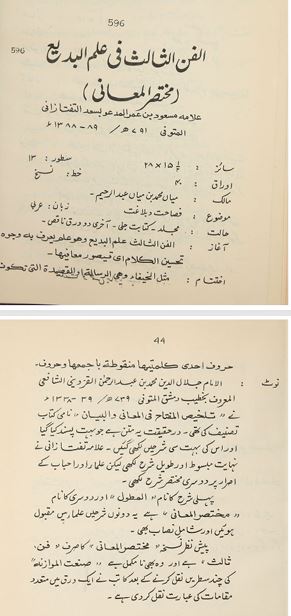 596
596
الفن الثالث فی علم البدیع
(مختصر المعانی)
علامہ مسعود بن عمر المدعو بسعد التفتازانی
المتوفی ۷۹۱ھ/ ۸۹ - ۱۳۸۸ء
سائز : ۱۵½ × ۲۸ سطور : ۱۳
اوراق : ۴۰ خط : نسخ
مالک : میاں محمد بن میاں عبدالرحیم۔
موضوع : فصاحت وبلاغت زبان : عربی
حالت : مجلد۔ کتابت جلی۔ آخری دو ورق ناقص۔
آغاز : الفن الثالث علم البدیع وهو علم یعرف به وجوه
تحسین الکلام ای یتصور معانیها۔
اختتام : مثل الخیفاء وهی الرسالة او القصیدة التی تکون
44
حروف احدی کلمتیها منقوطة باجمعها وحروف۔
نوٹ : الامام جلال الدین محمد بن عبدالرحمن القزوینی الشافعی
المعروف بخطیب دمشق المتوفی ۷۳۹ھ/ ۳۹ - ۱۳۳۸ء
نے "تلخیص المفتاح فی المعانی و البیان" نامی کتاب
تصنیف کی تھی۔ درحقیقت یہ متن ہے جو بہت پسند کیا گیا
اور اس کی بہت سی شرحیں لکھی گئیں۔ علامہ تفتازانی نے
نہایت مبسوط اور طویل شرح لکھی لیکن علما اور احباب کے
اصرار پر دوسری مختصر شرح لکھی۔
پہلی شرح کا نام "المطول" اور دوسری کا نام
"مختصر المعانی" ہے یہ دونوں شرحیں علما میں مقبول
ہوئیں اور شامل نصاب بھی۔
پیش نظر نسخہ "مختصر المعانی" کا صرف "فن
ثالث" ہے اور وہ بھی نامکمل ہے "صنعت الموازنہ"
کی چند سطریں نقل کرنے کے بعد کاتب نے ایک ورق میں متعدد
مقامات کی عبارت نقل کر دی ہے۔